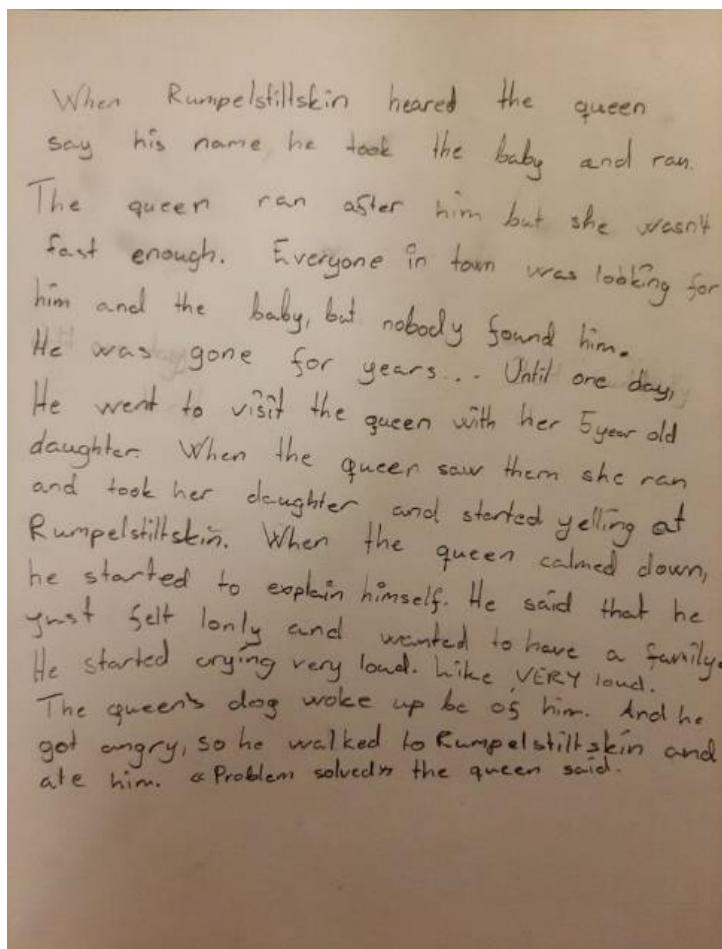 When Rumpelstiltskin heared the queen
say his name, he took the baby and ran.
The queen ran after him but she wasn't
fast enough. Everyone in town was looking for
him and the baby, but nobody found him.
He was gone for years... Until one day,
He went to visit the queen with her 5 year old
daughter. When the queen saw them she ran
and took her daughter and started yelling at
Rumpelstiltskin. When the queen calmed down,
he started to explain himself. He said that he
just felt lonly and wanted to have a family.
He started crying very loud. Like VERY loud.
The queen's dog woke up bc of him. And he
got angry, so he walked to Rumpelstiltskin and
ate him. «Problem solved» the queen said.